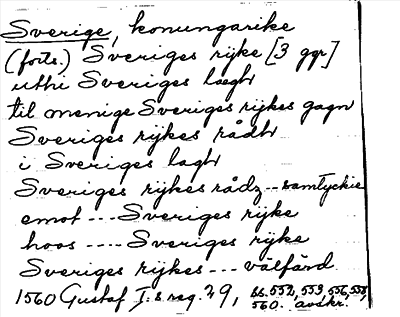 Sverige, konungarike
(forts.) Sveriges rijke [3 ggr]
uthi Sveriges lægh
til menige Sveriges rijkes gagn
Sveriges rijkes rådh
i Sveriges lagh
Sveriges rijkes rådz -- samtyckie
emot --- Sveriges rijke
hoos ---- Sveriges rijke
Sveriges rijkes --- välfärd
1560 Gustaf I:s reg. 29, ss. 552, 553, 556, 558,
560. avskr.